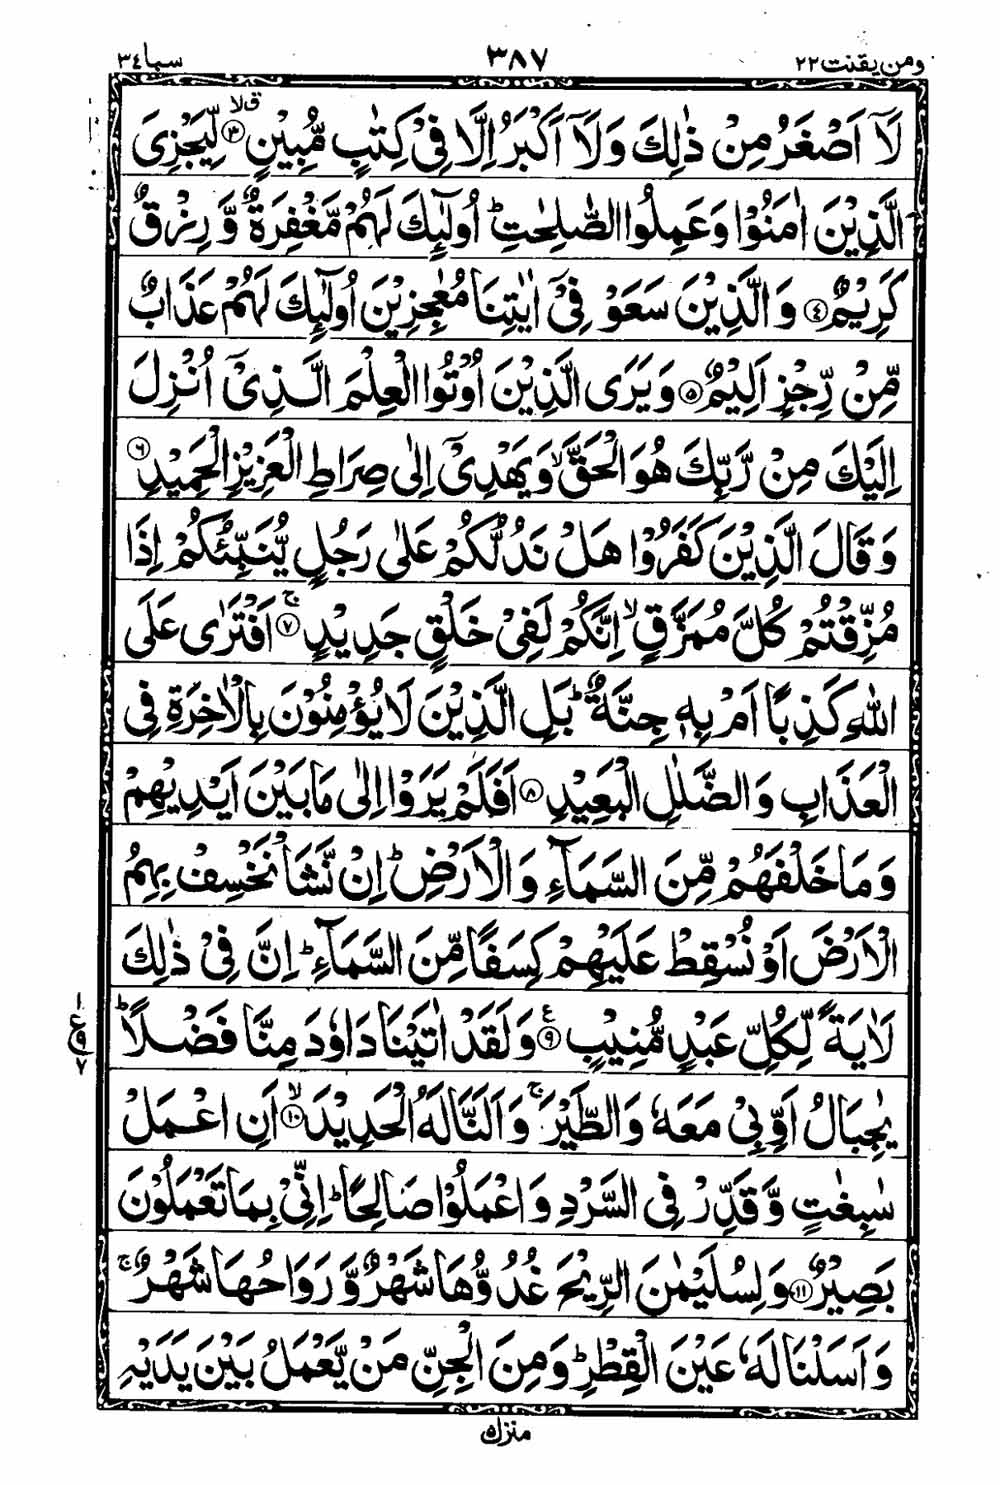 ومن يقنت ٢٢
٣٨٧
سبا ٣٤
لَاۤ اَصْغَرُ مِنْ ذٰلِكَ وَلَاۤ اَكْبَرُ اِلَّا فِیْ كِتٰبٍ مُّبِیْنٍ ۙق ﴿۳﴾ لِّیَجْزِیَ
الَّذِیْنَ اٰمَنُوْا وَعَمِلُوا الصّٰلِحٰتِ ؕ اُولٰٓئِكَ لَهُمْ مَّغْفِرَةٌ وَّ رِزْقٌ
كَرِیْمٌ ﴿۴﴾ وَ الَّذِیْنَ سَعَوْ فِیْۤ اٰیٰتِنَا مُعٰجِزِیْنَ اُولٰٓئِكَ لَهُمْ عَذَابٌ
مِّنْ رِّجْزٍ اَلِیْمٌ ﴿۵﴾ وَ یَرَی الَّذِیْنَ اُوْتُوا الْعِلْمَ الَّذِیْۤ اُنْزِلَ
اِلَیْكَ مِنْ رَّبِّكَ هُوَ الْحَقَّ ۙ وَ یَهْدِیْۤ اِلٰی صِرَاطِ الْعَزِیْزِ الْحَمِیْدِ ﴿۶﴾
وَ قَالَ الَّذِیْنَ كَفَرُوْا هَلْ نَدُلُّكُمْ عَلٰی رَجُلٍ یُّنَبِّئُكُمْ اِذَا
مُزِّقْتُمْ كُلَّ مُمَزَّقٍ ۙ اِنَّكُمْ لَفِیْ خَلْقٍ جَدِیْدٍ ۚ ﴿۷﴾ اَفْتَرٰی عَلَی
اللّٰهِ كَذِبًا اَمْ بِهٖ جِنَّةٌ ؕ بَلِ الَّذِیْنَ لَا یُؤْمِنُوْنَ بِالْاٰخِرَةِ فِی
الْعَذَابِ وَ الضَّلٰلِ الْبَعِیْدِ ﴿۸﴾ اَفَلَمْ یَرَوْا اِلٰی مَا بَیْنَ اَیْدِیْهِمْ
وَ مَا خَلْفَهُمْ مِّنَ السَّمَآءِ وَ الْاَرْضِ ؕ اِنْ نَّشَاْ نَخْسِفْ بِهِمُ
الْاَرْضَ اَوْ نُسْقِطْ عَلَیْهِمْ كِسَفًا مِّنَ السَّمَآءِ ؕ اِنَّ فِیْ ذٰلِكَ
لَاٰیَةً لِّكُلِّ عَبْدٍ مُّنِیْبٍ ﴿۹﴾ ع وَ لَقَدْ اٰتَیْنَا دَاوٗدَ مِنَّا فَضْلًا ؕ
١ ع ٩ ٧
یٰجِبَالُ اَوِّبِیْ مَعَهٗ وَ الطَّیْرَ ۚ وَ اَلَنَّا لَهُ الْحَدِیْدَ ۙ ﴿۱۰﴾ اَنِ اعْمَلْ
سٰبِغٰتٍ وَّ قَدِّرْ فِی السَّرْدِ وَ اعْمَلُوْا صَالِحًا ؕ اِنِّیْ بِمَا تَعْمَلُوْنَ
بَصِیْرٌ ﴿۱۱﴾ وَ لِسُلَیْمٰنَ الرِّیْحَ غُدُوُّهَا شَهْرٌ وَّ رَوَاحُهَا شَهْرٌ ۚ
وَ اَسَلْنَا لَهٗ عَیْنَ الْقِطْرِ ؕ وَ مِنَ الْجِنِّ مَنْ یَّعْمَلُ بَیْنَ یَدَیْهِ
منزل ٥